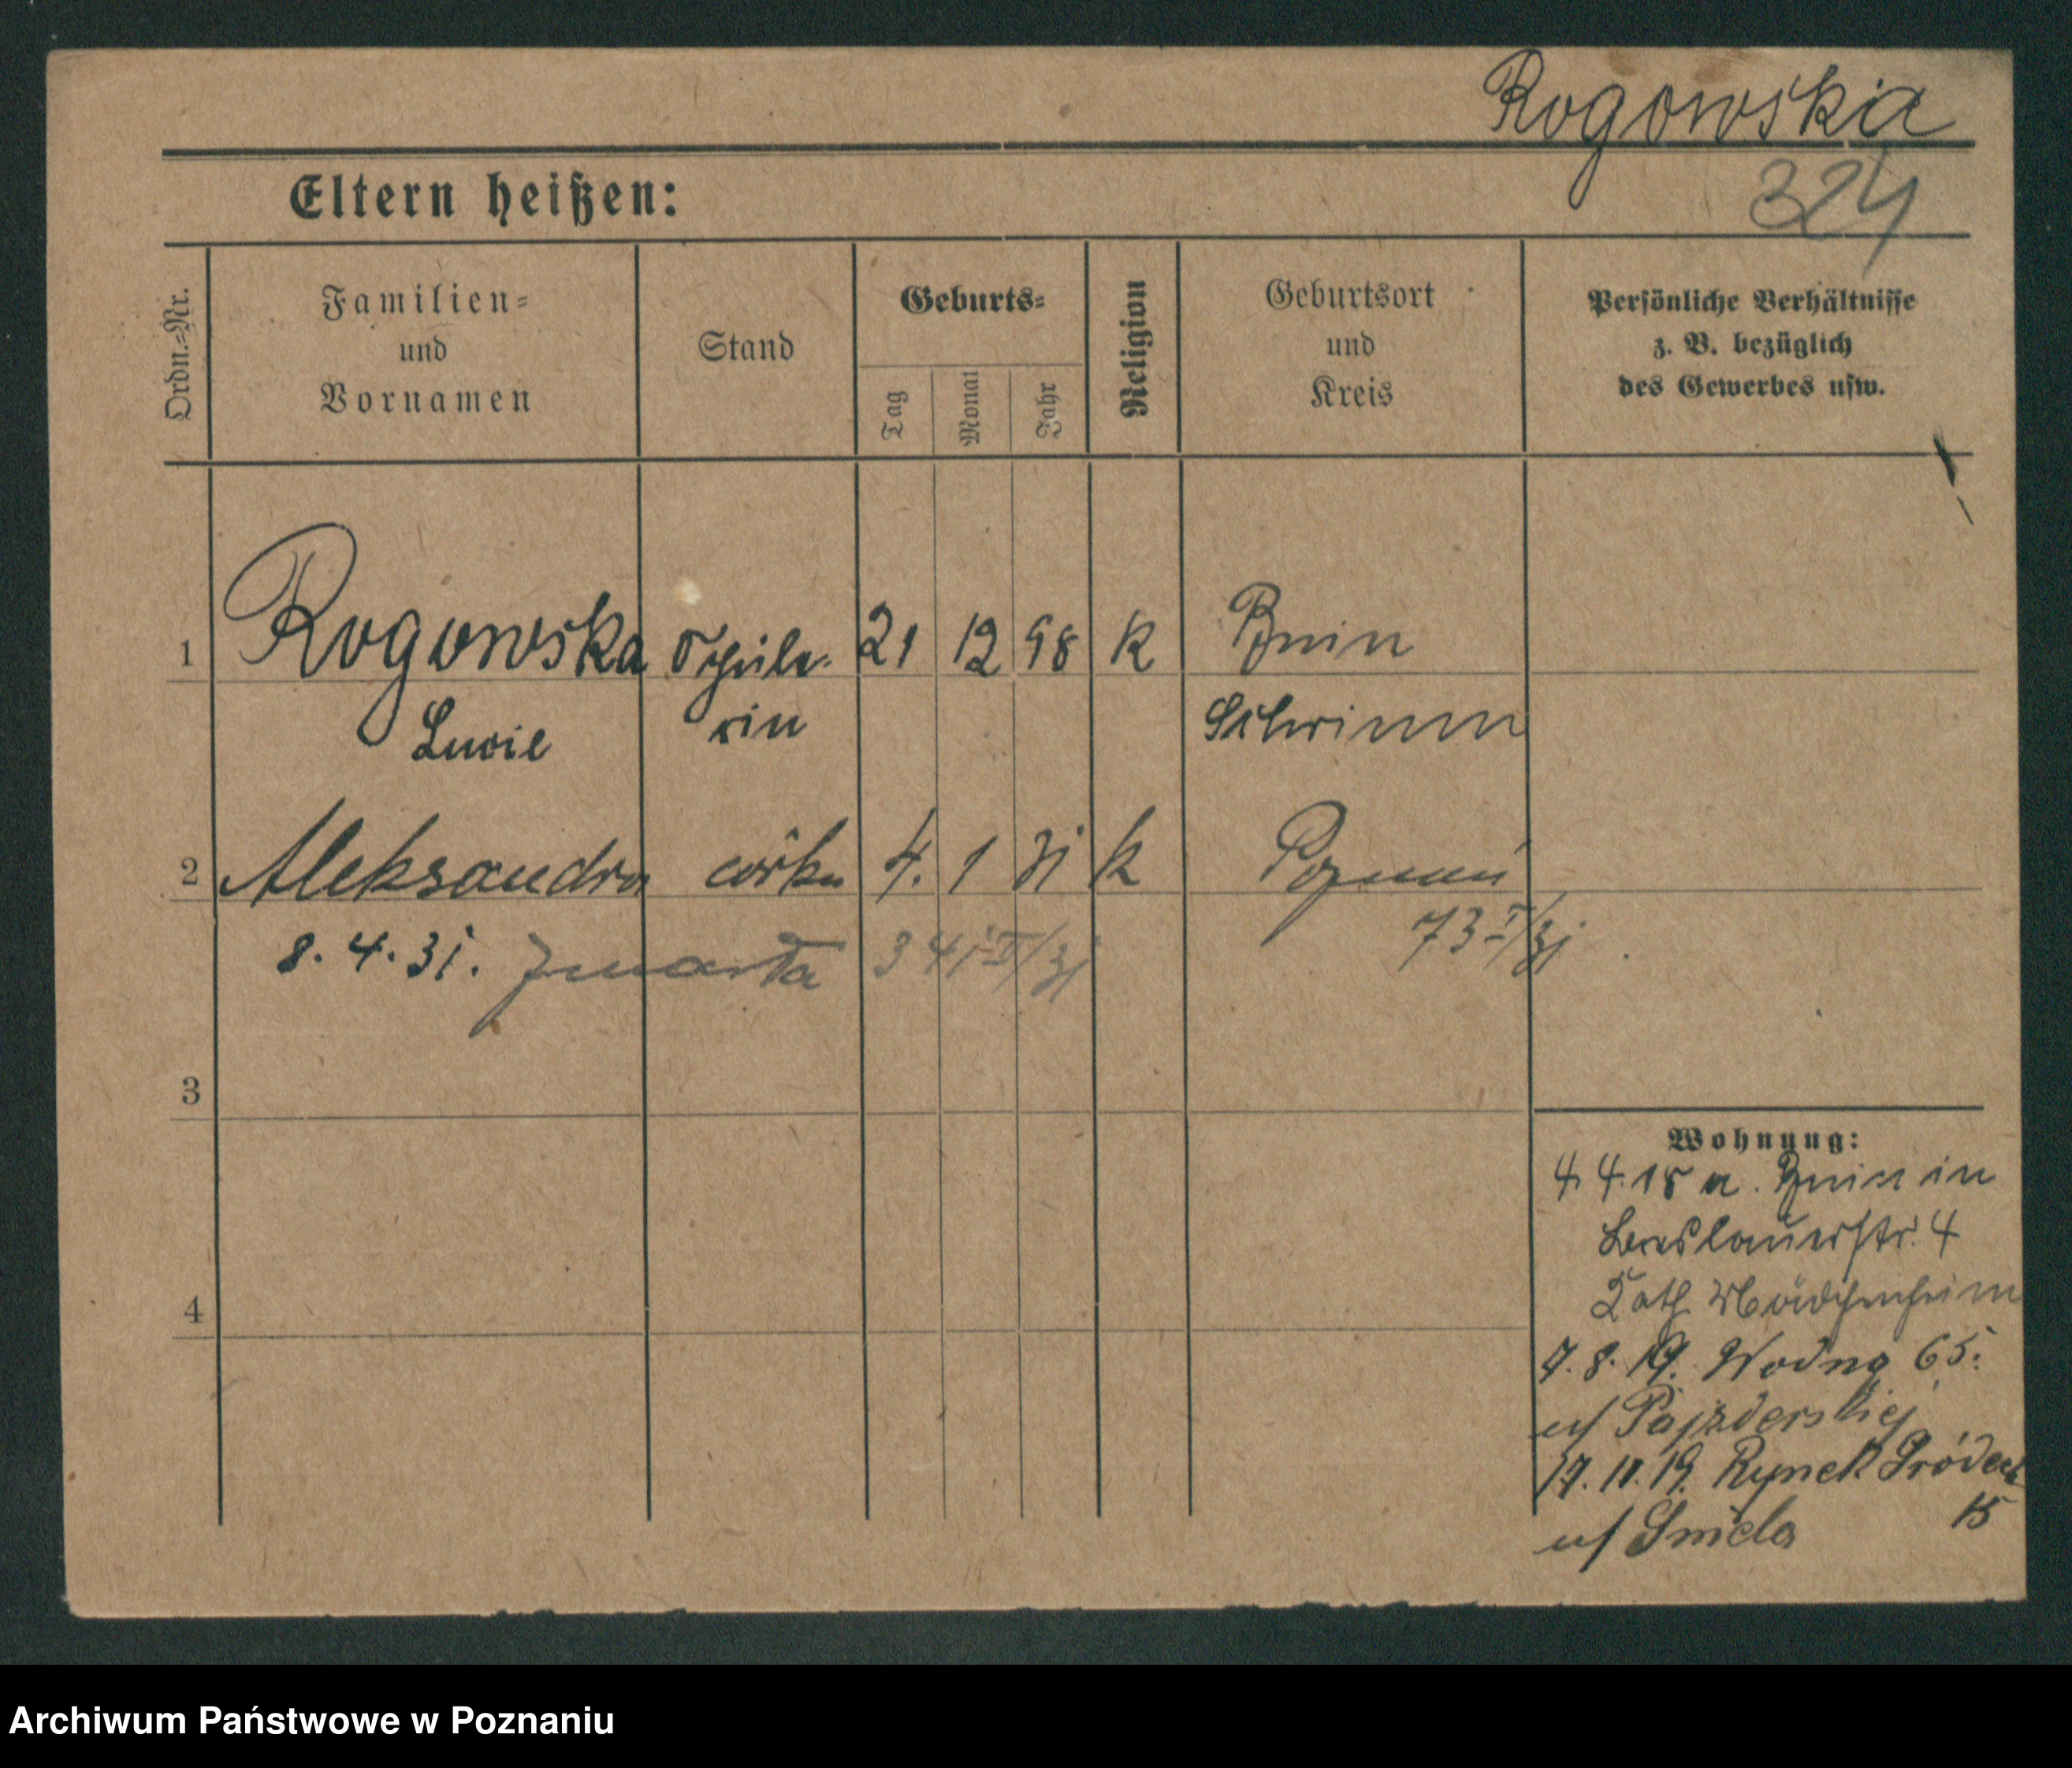 Rogowska
324
Eltern heißen:
Ordn.=Nr.
Familien=
und
Vornamen
Stand
Geburts=
Tag
Monat
Jahr
Religion
Geburtsort
und
Kreis
Persönliche Verhältnisse
z. B. bezüglich
des Gewerbes usw.
1 Rogowska Schüle- 21 12 98 K Bnin
Lucie rin Schrimm
2 Aleksandra córka 4. 1 31 k Poznań
73 I/31
8. 4. 31. zmarła 341 II/31
3
4
Wohnung:
4. 4. 18 a. Bnin in
Breslauerstr. 4
Kath Mädchenheim
7. 8. 19. Wodna 65.
u/ Pajzderskiej
17. 11. 19. Rynek Śródeck
15
u/
Archiwum Państwowe w Poznaniu